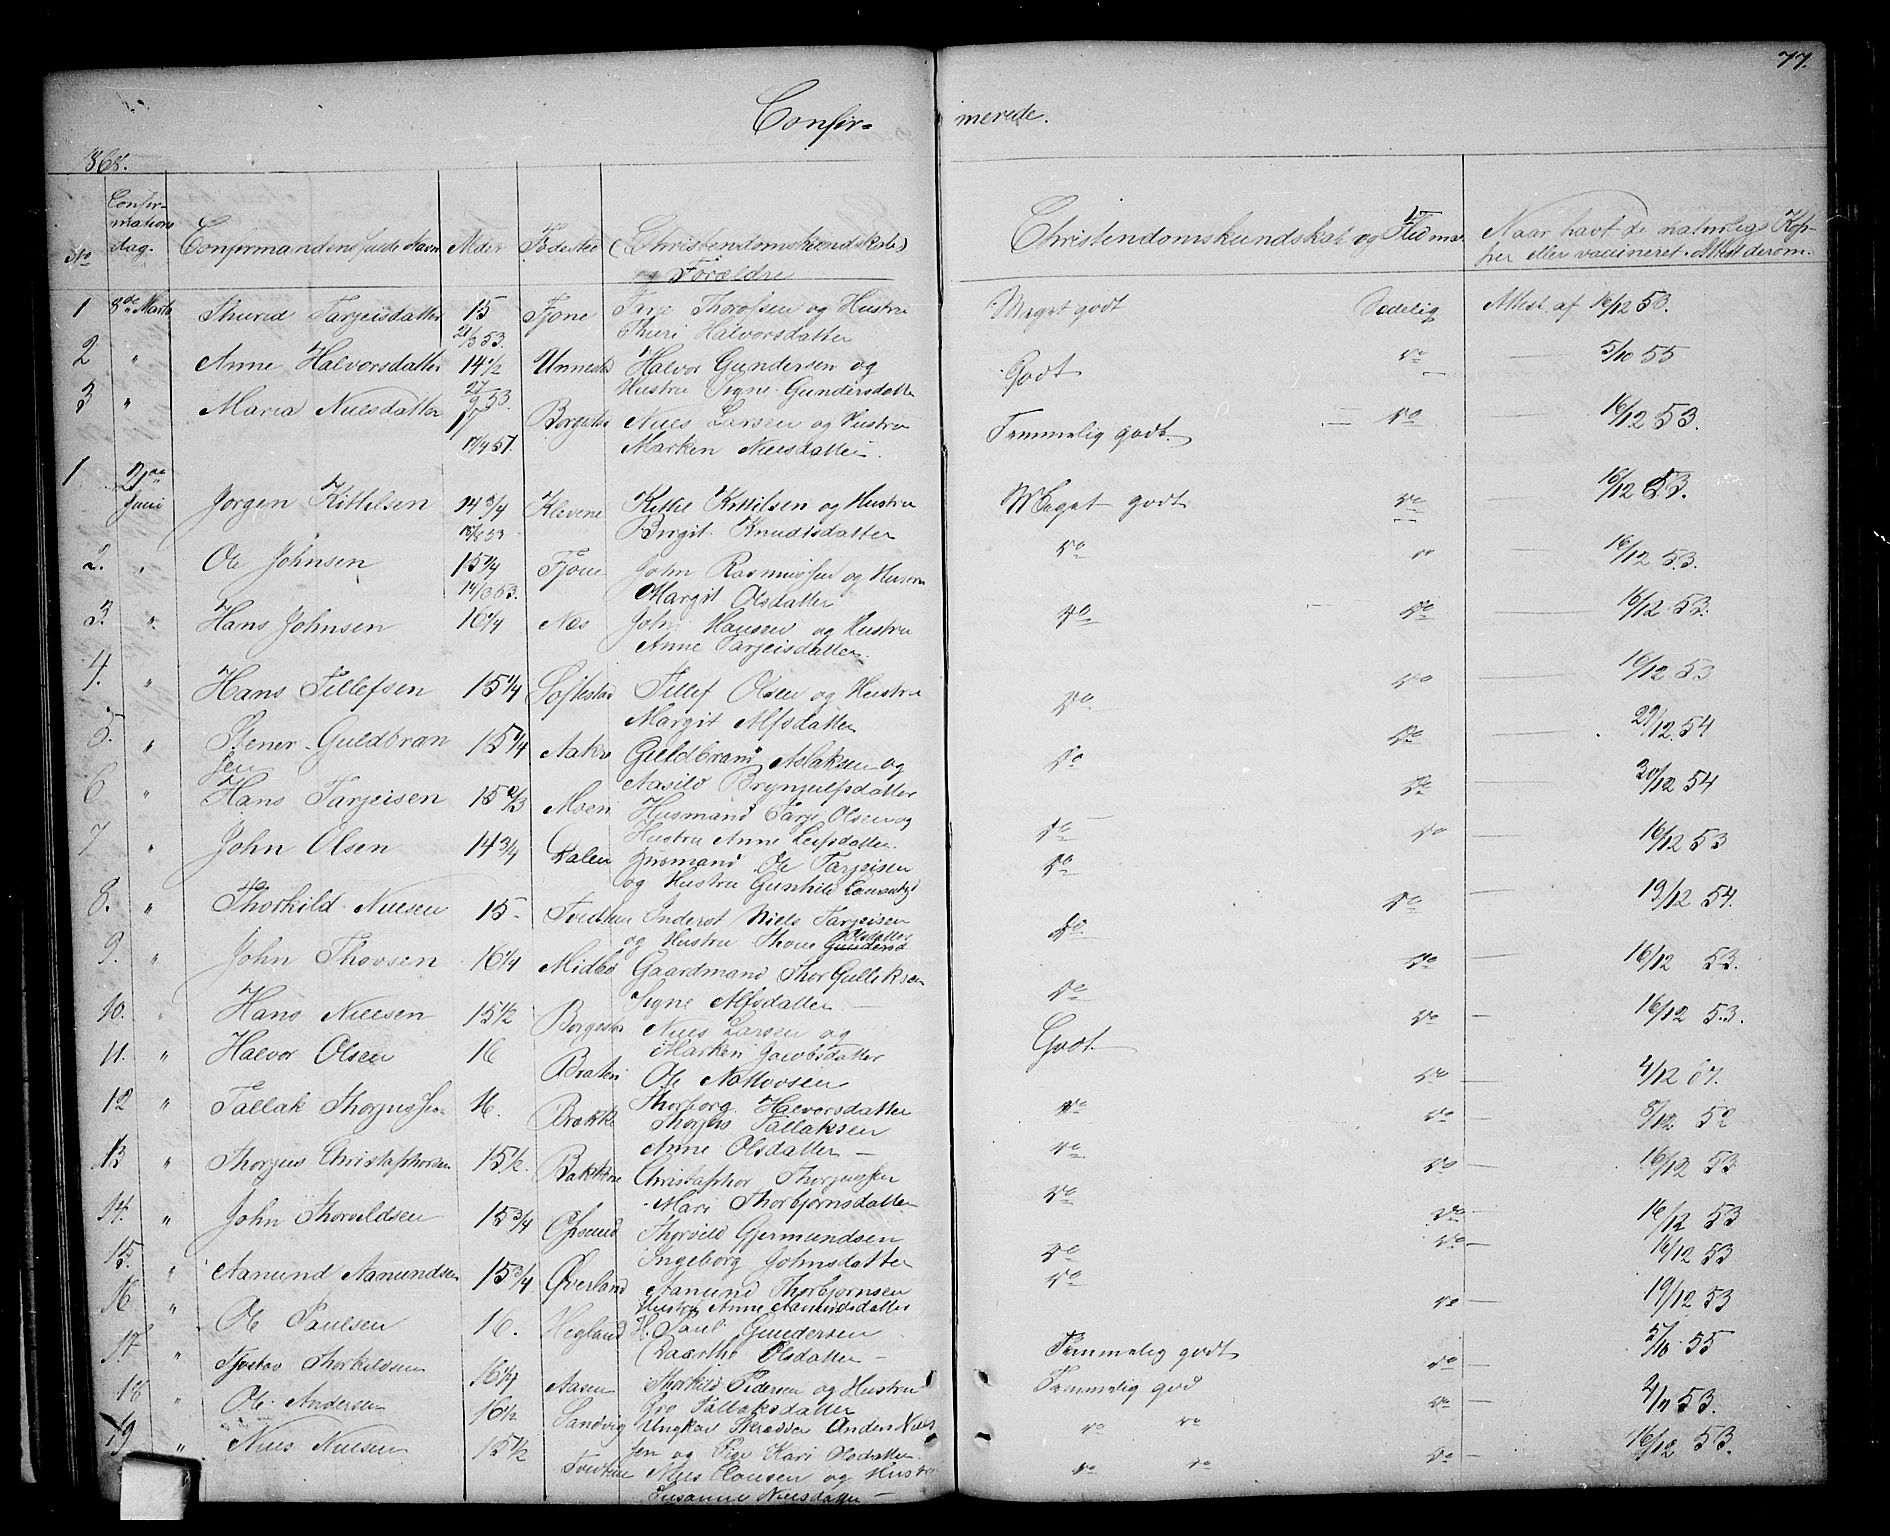 77.
Confir- merede.
868.
No Confirmations dag. Confirmandens fulde Navn Alder Fødested (Christendomskundskab) og Forældre Christendomskundskab og Flid Naar havt de naturlige Kopper eller vaccineret. Attest derom.
1 8de Marts Thurid Tarjeisdatter 15 21/3 53. Fjone Tarje Thorosen og Hustru Meget godt Sædelig Attest af 16/12 53.
Thuri Halvorsdatter
2 " Anne Halvorsdatter 14 1/2 Unnestad Halvor Gundersen og Godt do 5/10 55
27/9 53. Hustru Signe Gundersdatter
3 " Maria Nielsdatter 17 Borgestad Niels Larsen og Hustru Temmelig godt. do 16/12 53.
17/4 51. Marken Nielsdatter.
1 21de Juni Jørgen Kittilsen 14 3/4 Klevene Kittil Kittilsen og Hustru Meget godt do 16/12 53.
Birgit Knudtsdatter
2. " Ole Johnsen 15 1/4 Fjone John Rasmussen og Hustru do do 16/12 53.
14/3 53. Margit Olsdatter
3. " Hans Johnsen 16 1/4 Næs John Hansen og Hustru do do 16/12 53.
Anne Tarjeisdatter
4. " Hans Tellefsen 15 1/4 Softestad Tellef Olsen og Hustru do do 16/12 53
Margit Alfsdatter
5. " Stener Guldbran 15 1/4 Aakre Guldbrand Aslaksen og do do 29/12 54
sen Aasild Brynjulfsdatter
6 " Hans Tarjeisen 15 2/3 Moen Husmand Tarje Olsen og do do 30/12 54
Hustru Anne Leifsdatter
7 " John Olsen 14 3/4 Dalen Husmand Ole Tarjeisen do do 16/12 53
og Hustru Gunhild
8. " Thorkild Nielsen 15 Inderst Niels Tarjeisen do do 19/12 54.
og Hustru Thone Olsdatter
9. " John Thovsen 16 1/4 Midbø Gaardmand Thor Gulliksen do do 16/12 53.
Signe Alfsdatter —
10. " Hans Nielsen 15 1/2 Borgestad Niels Larsen og Godt do 16/12 53.
Marken Jacobsdatter
11. " Halvor Olsen 16 Bratteri Ole Nottovsen do 4/12 57.
Thorborg Halvorsdatter
12 " Tallak Thorjussen 16. Brække Thorjus Tallaksen do do 8/12 52
Anne Olsdatter —
13 " Thorjus Christophersen 15 1/2. Bakkene Christophor Thorjussen do do 16/12 53
Mari Thorbjørnsdatter
14. " John Thorvildsen 15 3/4 Thorvild Gjermundsen do do 16/12 53
Ingeborg Johnsdatter
15. " Aanund Aanundsen 15 3/4 Øverland Aanund Thorbjørnsen do do 16/12 53
Hustru Anne Aanundsdatter
16 " Ole Paulsen 16. Hegland H. Paul Gundersen do do 19/12 53
Daarthe Olsdatter —
17. " Tjostov Thorkildsen 16 1/4 Aasen Thorkild Pedersen og Hustru Temmelig godt do 5/10 55
Gro Tallaksdatter
18 " Ole Andersen 16 1/2 Sandvig Ungkarl Skrædder Anders Niels Temmelig god do 2/11 53.
sen og Pige Kari Olsdatter
19 " Niels Nielsen 15 1/2 Tvedtene Niels Clausen og Hustru do do do 16/12 53.
Susanne Nielsdatter —